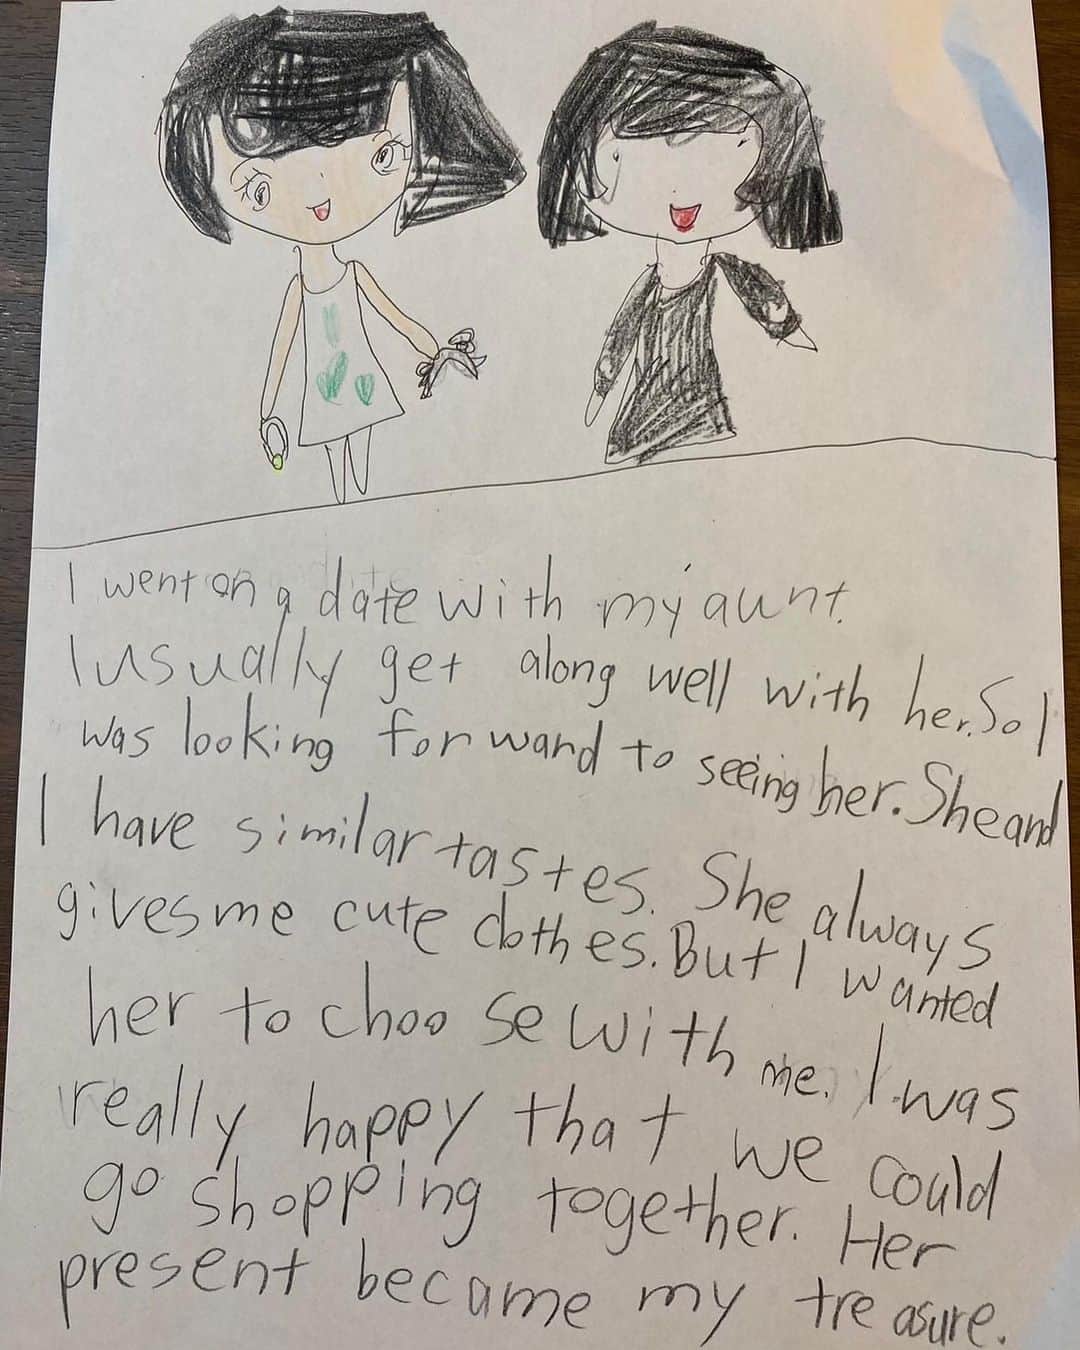 I went on a date with my aunt.
I usually get along well with her. So I
was looking forward to seeing her. She and
I have similar tastes. She always
gives me cute clothes. But I wanted
her to choose with me. I was
really happy that we could
go shopping together. Her
present became my treasure.